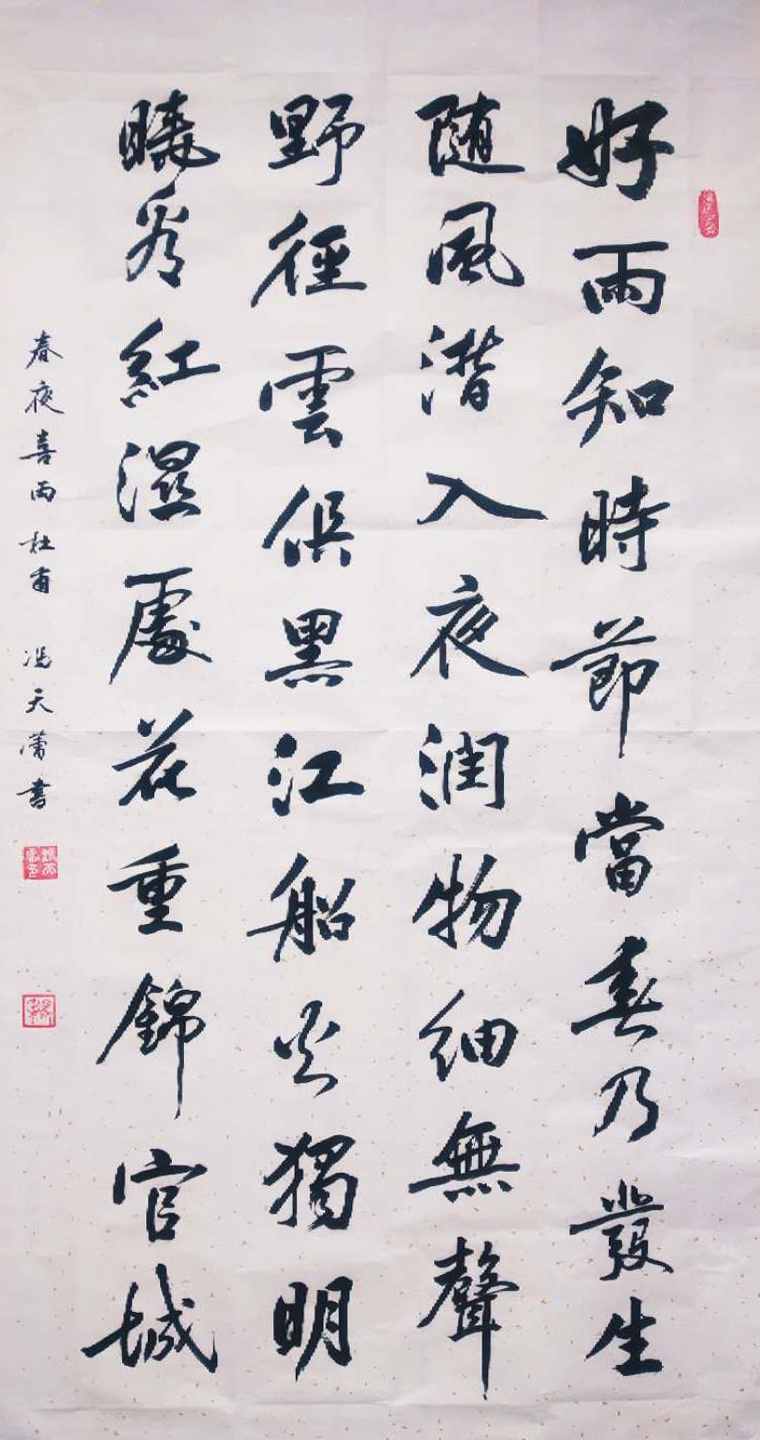 好雨知時節當春乃發生
随風潛入夜潤物細無聲
野徑雲俱黑江船火獨明
曉看紅濕處花重錦官城
春夜喜雨 杜甫 馮天蕭書